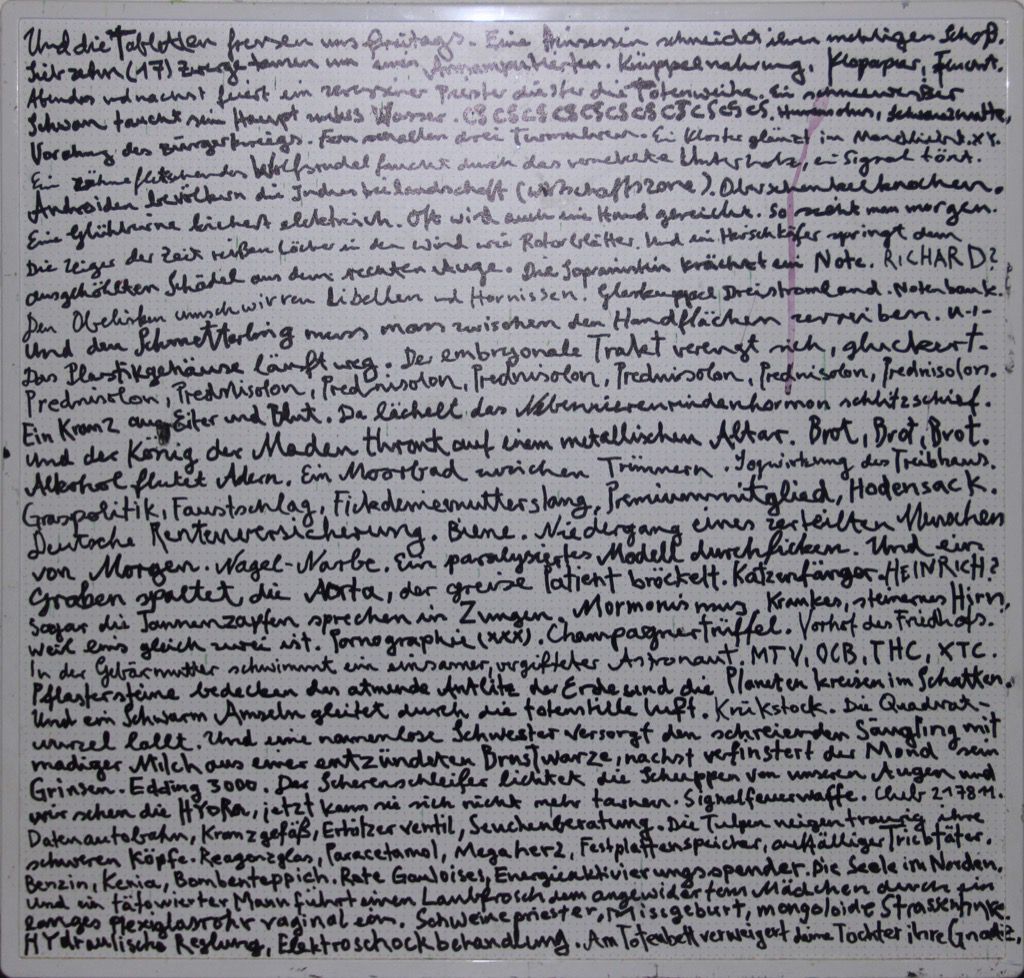 Und die Tabletten fressen uns freitags. Eine Prinzessin schneidet ihren mehligen Schoß.
zehn (17) Zwerge um einen Armamputierten. Krüppelnahrung, Klopapier, Feuert.
Abendos und nachst feiert ein Priester düster die Totenweihe. Ein schneeweisser
Schwan taucht sein Haupt unters Wasser. CS CS CS CS CS CS CS CS CS CS CS. Humanohus,
Vorahnung des Bürgerkriegs. Fern schallen drei Turmuhren. Ein Kloster glänzt im Mondlicht. XY.
Ein zähnefletschendes Wolfsrudel faucht durch das vernebelte Unterholz, ein Signal tönt.
Androiden bevölkern die Industrielandschaft (wirtschaftszone). Oberschenkelknochen.
Eine Glühbirne kichert elektrisch. Oft wird auch eine Hand gereicht. So sieht man morgen.
Die Zeiger der Zeit reißen Löcher in den Wind wie Rotorblätter. Und ein Hirschkäfer springt dem
ausgehöhlten Schädel aus dem rechten Auge. Die Sopranistin krächzt ein Note. RICHARD?
Den Obelisken umschwirren Libellen und Hornissen. Glaskuppel Dreistromland. Notenbank.
Und den Schmetterling muss man zwischen den Handflächen zerreiben. u-i-
Das Plastikgehäuse läuft weg. Der embryonale Trakt verengt sich, gluckert-
Prednisolon, Prednisolon, Prednisolon, Prednisolon, Prednisolon, Prednisolon, Prednisolon.
Ein Kranz aus Eiter und Blut. Da lächelt das Nebennierenrindenhormon schlitzschief.
Und der König der Maden thront auf einem metallischen Altar. Brot, Brot, Brot.
Alkohol flutet Adern. Ein Moorbad zwischen Trümmern. Sogwirkung des Treibhaus.
Graspolitik, Faustschlag, Fickdeinemutterslang, Premiummitglied, Hodensack.
Deutsche Rentenversicherung. Biene. Niedergang eines zerteilten Menschen
von Morgen. Nagel-Narbe. Ein paralysiertes Modell durchficken. Und ein
Graben spaltet die Aorta, der greise Patient bröckelt. Katzenfänger. HEINRICH?
Sogar die Tannenzapfen sprechen in Zungen. Mormonismus, Krankes, steinernes Hirn,
weil eins gleich zwei ist. Pornographie (XXX). Champagnertrüffel. Vorhof des Friedhofs.
In der Gebärmutter schwimmt ein einsamer, vergifteter Astronaut. MTV, OCB, THC, XTC.
Pflastersteine bedecken das atmende Antlitz der Erde und die Planeten kreisen im Schatten.
Und ein Schwarm Amseln gleitet durch die totenstille Luft. Krükstock. Die Quadrat-
wurzel lallt. Und eine namenlose Schwester versorgt den schreienden Säugling mit
madiger Milch aus einer entzündeten Brustwarze, nachst verfinstert der Mond sein
Grinsen. Edding 3000. Der Scherenschleifer lichtet die Schuppen von unseren Augen und
wir sehen die HYDRA, jetzt kann sie sich nicht mehr tarnen. Signalfeuerwaffe. Club 217811.
Datenautobahn, Kranzgefäß, Erhitzerventil, Seuchenberatung. Die Tulpen neigen traurig ihre
schweren Köpfe. Reagenzglas, Paracetamol, Megaherz, Festplattenspeicher, auffälliger Triebtäter.
Benzin, Kenia, Bombenteppich. Rote Gauloises, Energieaktivierungsspender. Die Seele im Norden.
Und ein tätowierter Mann führt einen Laubfrosch dem angewiderten Mädchen durch ein
langes Plexiglasrohr vaginal ein. Schweinepriester, Missgeburt, mongoloide Strassenhure.
HYdraulische Reglung, Elektroschockbehandlung. Am Totenbett verweigert deine Tochter ihre Gnade,